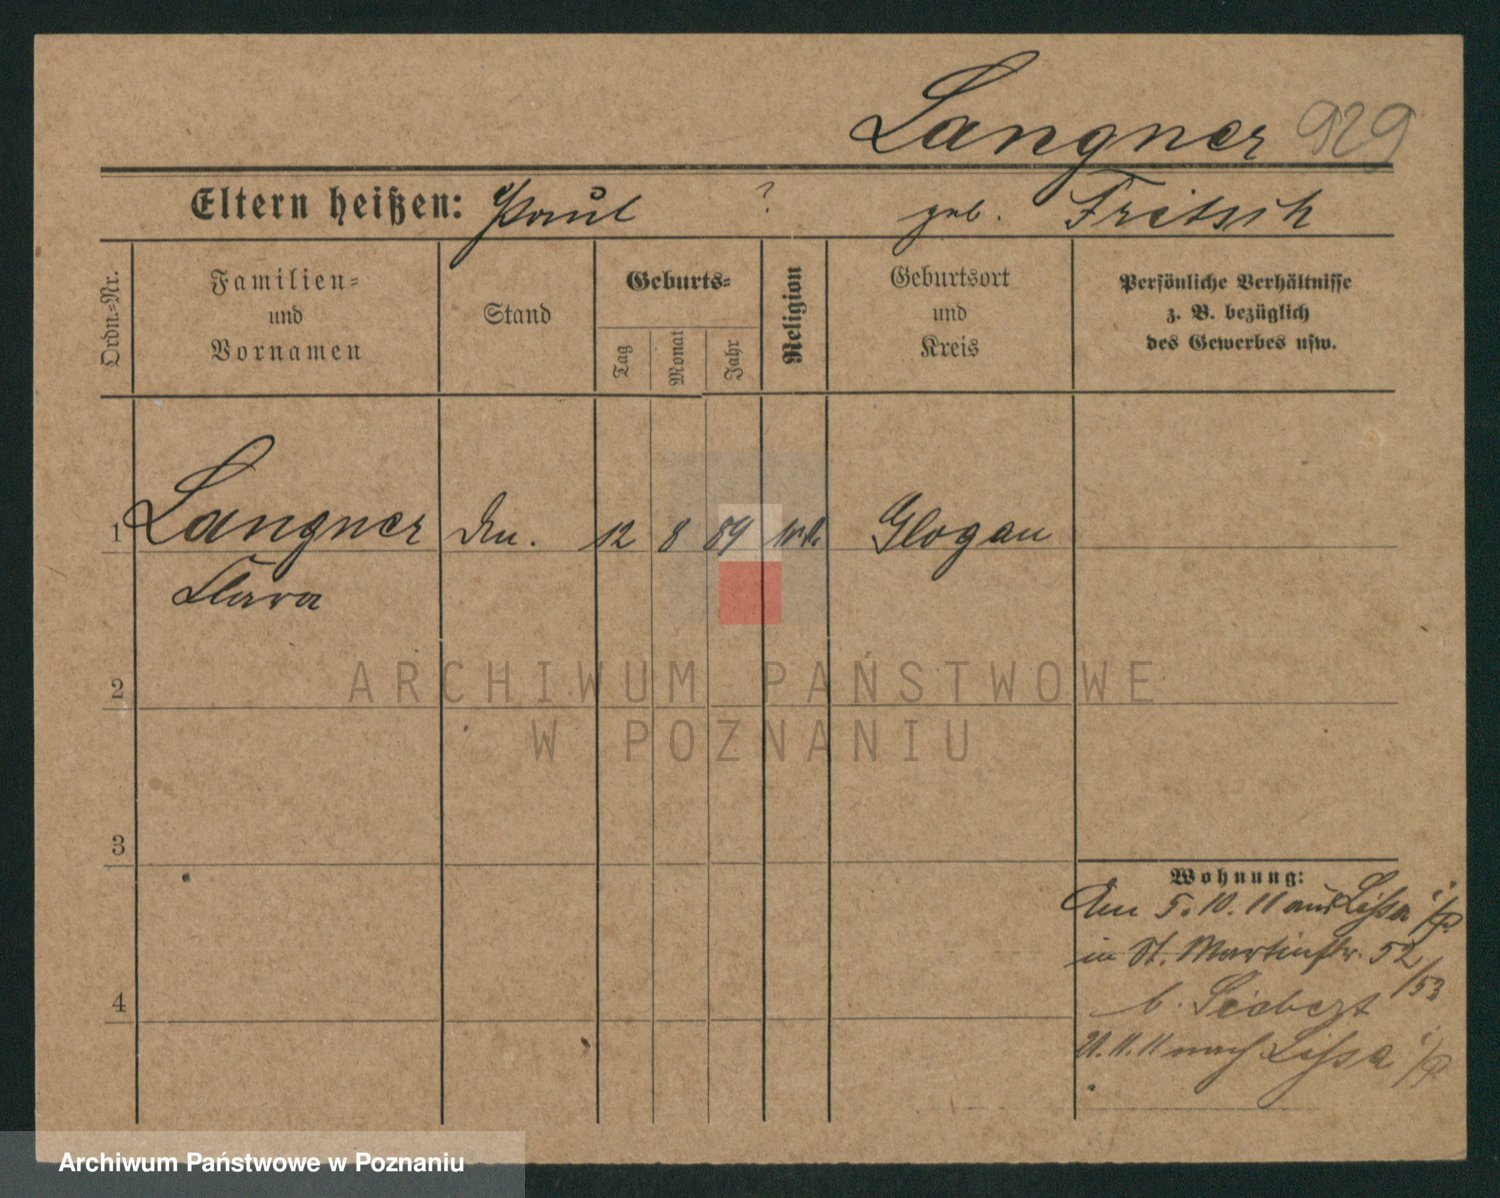 Langner 929
Eltern heißen: Paul ? geb. Fritsch
Ordn.-Nr.
Familien-
und
Vornamen
Stand
Geburts-
Tag
Monat
Jahr
Religion
Geburtsort
und
Kreis
Persönliche Verhältnisse
z. B. bezüglich
des Gewerbes usw.
1 Langner 12 8 89 Glogau
Clara
2
3
4
Wohnung:
Am 5.10.11 aus Lissa i/P.
in St. Martinstr. 52/53
b. Seibert
11.11 nach Lissa i/P.
ARCHIWUM PAŃSTWOWE
W POZNANIU
Archiwum Państwowe w Poznaniu